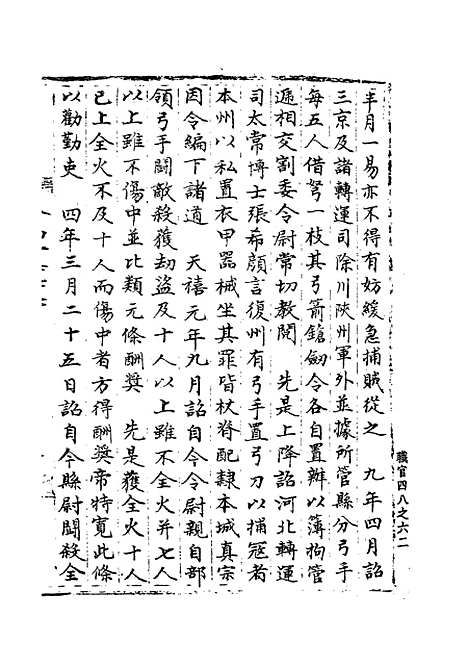 半月一易亦不得有妨緩急捕賊從之　九年四月詔
三京及諸轉運司除川陝州軍外並據所管縣分弓手
每五人借弩一枝其弓箭鎗劒令各自置辦以簿拘管
遞相交割委令尉常切教閱　先是上降詔河北轉運
司太常博士張希顔言復州有弓手置弓刀以捕寇者
本州以私置衣甲器械坐其罪皆杖脊配隸本城真宗
因令編下諸道　天禧元年九月詔自今令尉親自部
領弓手鬬敵殺獲刼盜及十人以上雖不全火并七人
以上雖不傷中並比類元條酬獎　先是獲全火十人
已上全火不及十人而傷中者方得酬獎帝特寬此條
以勸勤吏　四年三月二十五日詔自今縣尉鬬殺全
職官四八之六二